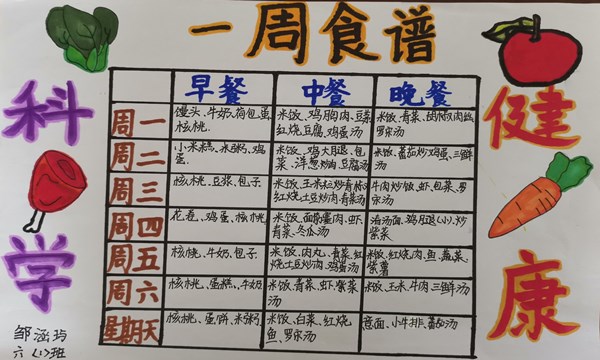 一周食谱
科学
健康
早餐 中餐 晚餐
周一
馒头、牛奶、荷包蛋、
核桃。
米饭、鸡胸肉、豆浆
红烧豆腐、鸡蛋汤
米饭、青菜、胡椒肉
罗宋汤
周二
小米粥、鸡
蛋。
米饭、鸡大腿、包
菜、洋葱炒肉、豆腐汤
米饭、蕃茄炒鸡蛋、三鲜
汤
周三
核桃、豆浆、包子、
米饭、玉米粒炒青椒
红烧土豆炒肉、青菜汤
牛肉炒饭、虾、包菜、罗
宋汤
周四
花卷、鸡蛋、核桃
米饭、肉、虾、
青菜、冬瓜汤
清汤面、鸡腿(小)、炒
紫菜
周五
核桃、牛奶、包子、
米饭、肉丸、青菜、红
烧土豆炒肉、鸡蛋汤
米饭、红烧肉、鱼、蔬菜、
紫薯
周六
核桃、蛋糕、牛奶
米饭、青菜、虾、紫菜
汤
米饭、玉米、牛肉、三鲜汤
星期天
核桃、蛋饼、米粥
米饭、白菜、红烧
鱼、罗宋汤
意面、小牛排、蕃茄汤
邹涵
六(1)班